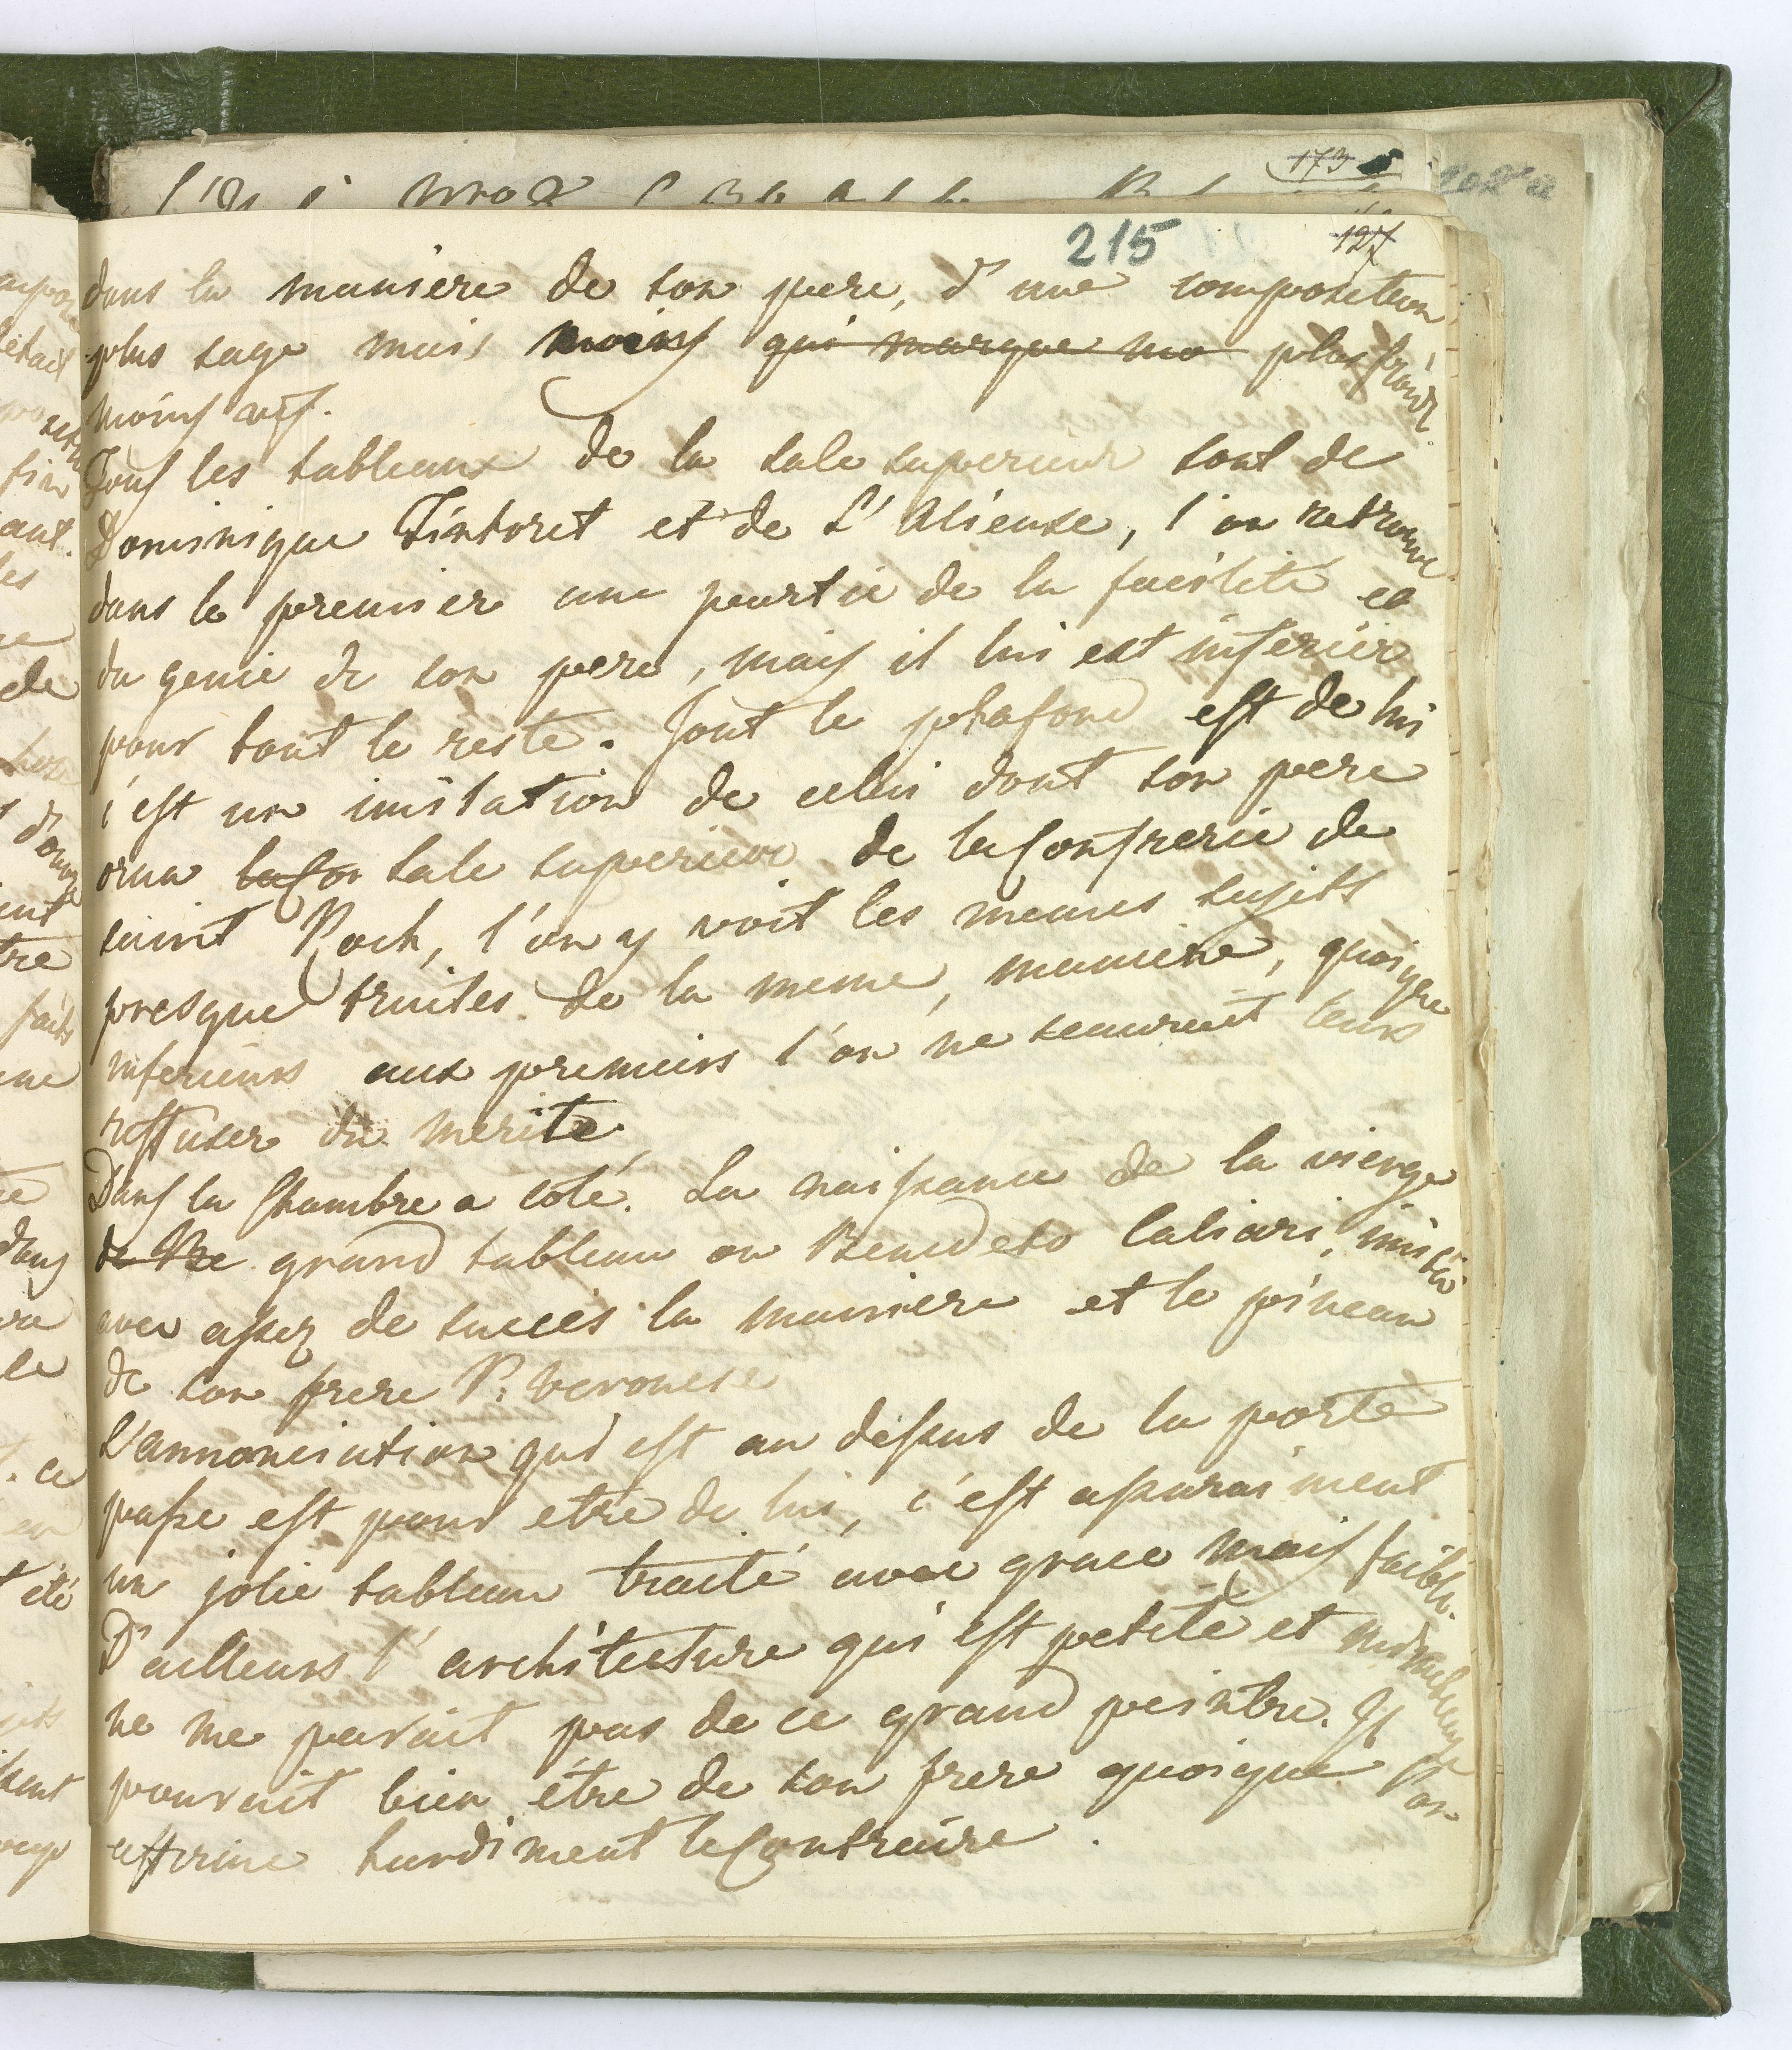 173
202 a
215
127
dans la maniere de son pere, d'une composition
plus sage mais moins qui marque mo plus froide
moins vif.
Tous les tableaux de la sale superieur sont de
Dominique Tintoret et de L'Aliense, l'on retrouve
dans le premier une partie de la facilité et
du genie de son pere, mais il lui est inferieir
pour tout le reste. Tout le plafond est de lui
c'est un imitation de celui dont son pere
orna la Con sale superieure de la Confrerie de
saint Roch, l'on y voit les memes sujets
presque traites de la meme, maniere, quoique
inferieurs aux premiers l'on ne scauroit leurs
reffuser du merite
Dans la Chambre a coté. La naissance de la vierge
de Be grand tableau ou Benedeto Caliari, imita
avec assez de succès la maniere et le pinceau
de son frere P. Veronese
L'annonciation qui est au dessus de la porte
passe est pour etre de lui, c'est assuraiment
un jolie tableau traité avec grace mais faible.
D'ailleurs l'architecture qui est petite et
ne me parait pas de ce grand peintre. Il
pourrait bien être de son frere quoique l'on
affirme hardiment le Contraire.